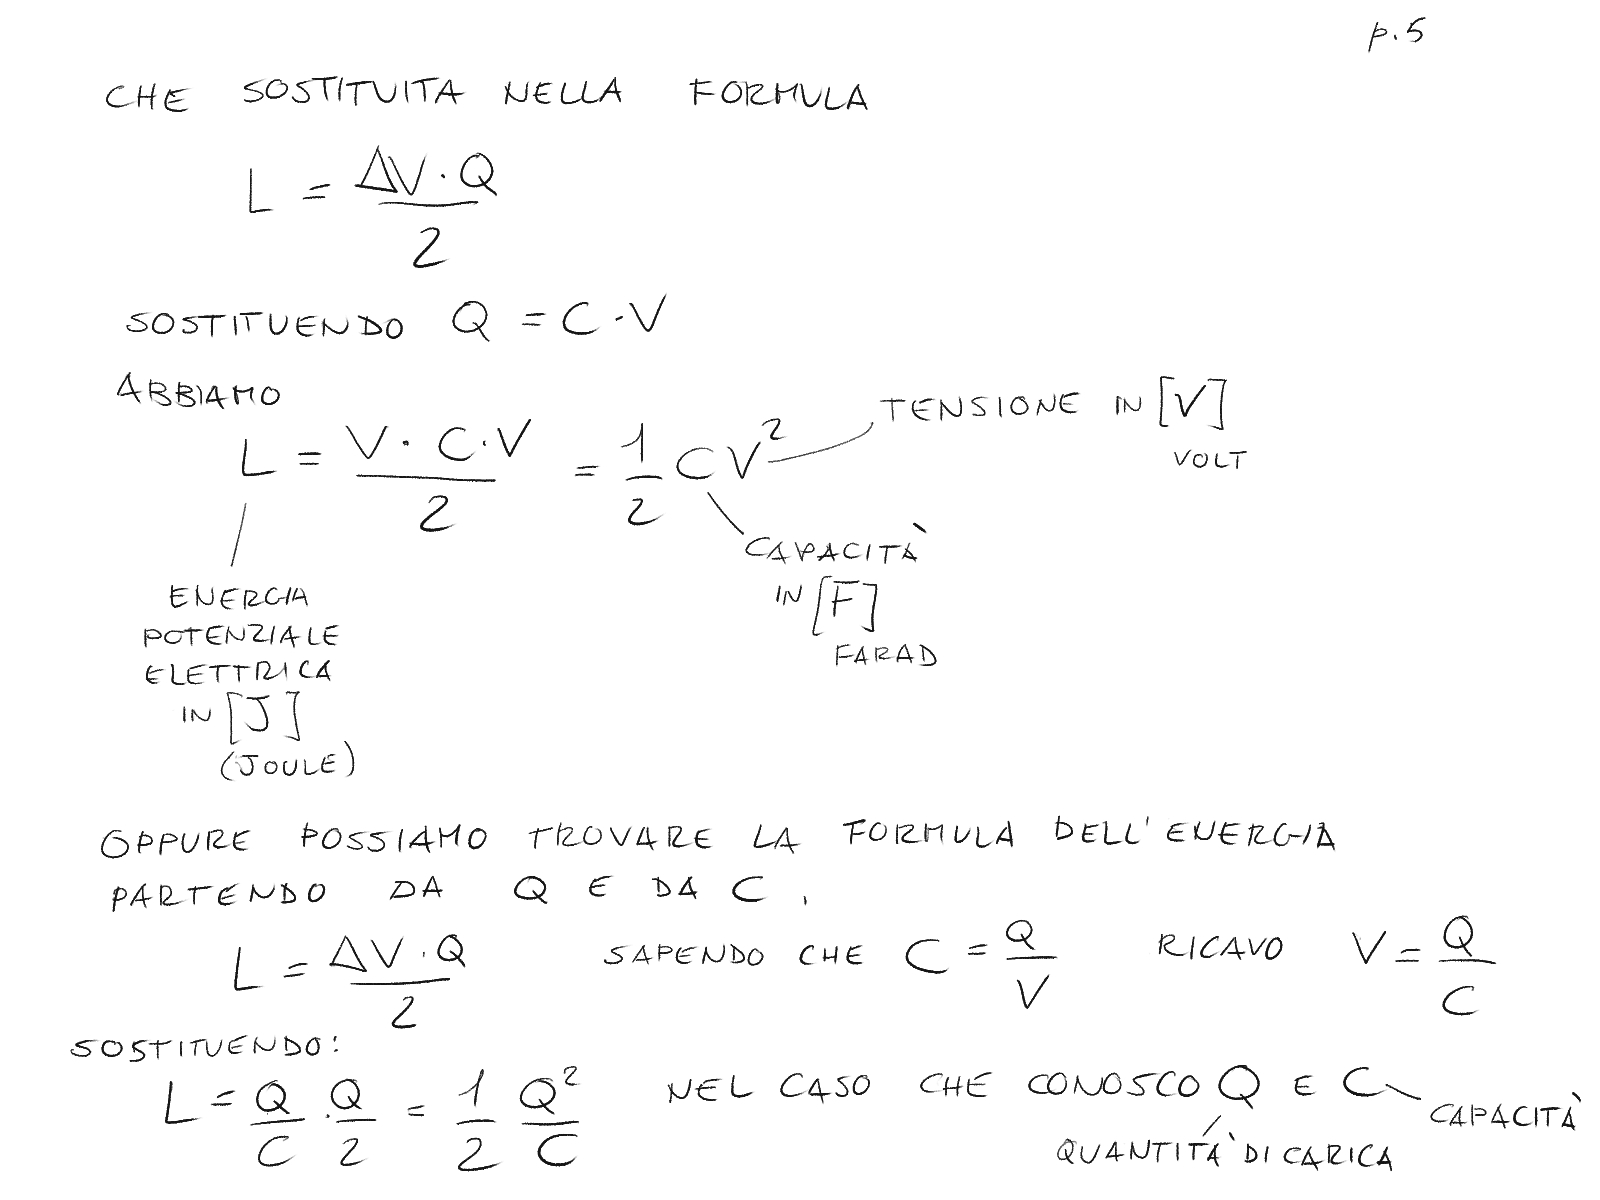 p.5
CHE SOSTITUITA NELLA FORMULA
L = ΔV·Q / 2
SOSTITUENDO Q = C·V
ABBIAMO
L = V·C·V / 2 = 1/2 CV²
TENSIONE IN [V]
VOLT
CAPACITÀ
IN [F]
FARAD
ENERGIA
POTENZIALE
ELETTRICA
IN [J]
(JOULE)
OPPURE POSSIAMO TROVARE LA FORMULA DELL'ENERGIA
PARTENDO DA Q E DA C.
L = ΔV·Q / 2 SAPENDO CHE C = Q/V RICAVO V = Q/C
SOSTITUENDO:
L = Q/C · Q/2 = 1/2 Q²/C NEL CASO CHE CONOSCO Q E C
CAPACITÀ
QUANTITÀ DI CARICA